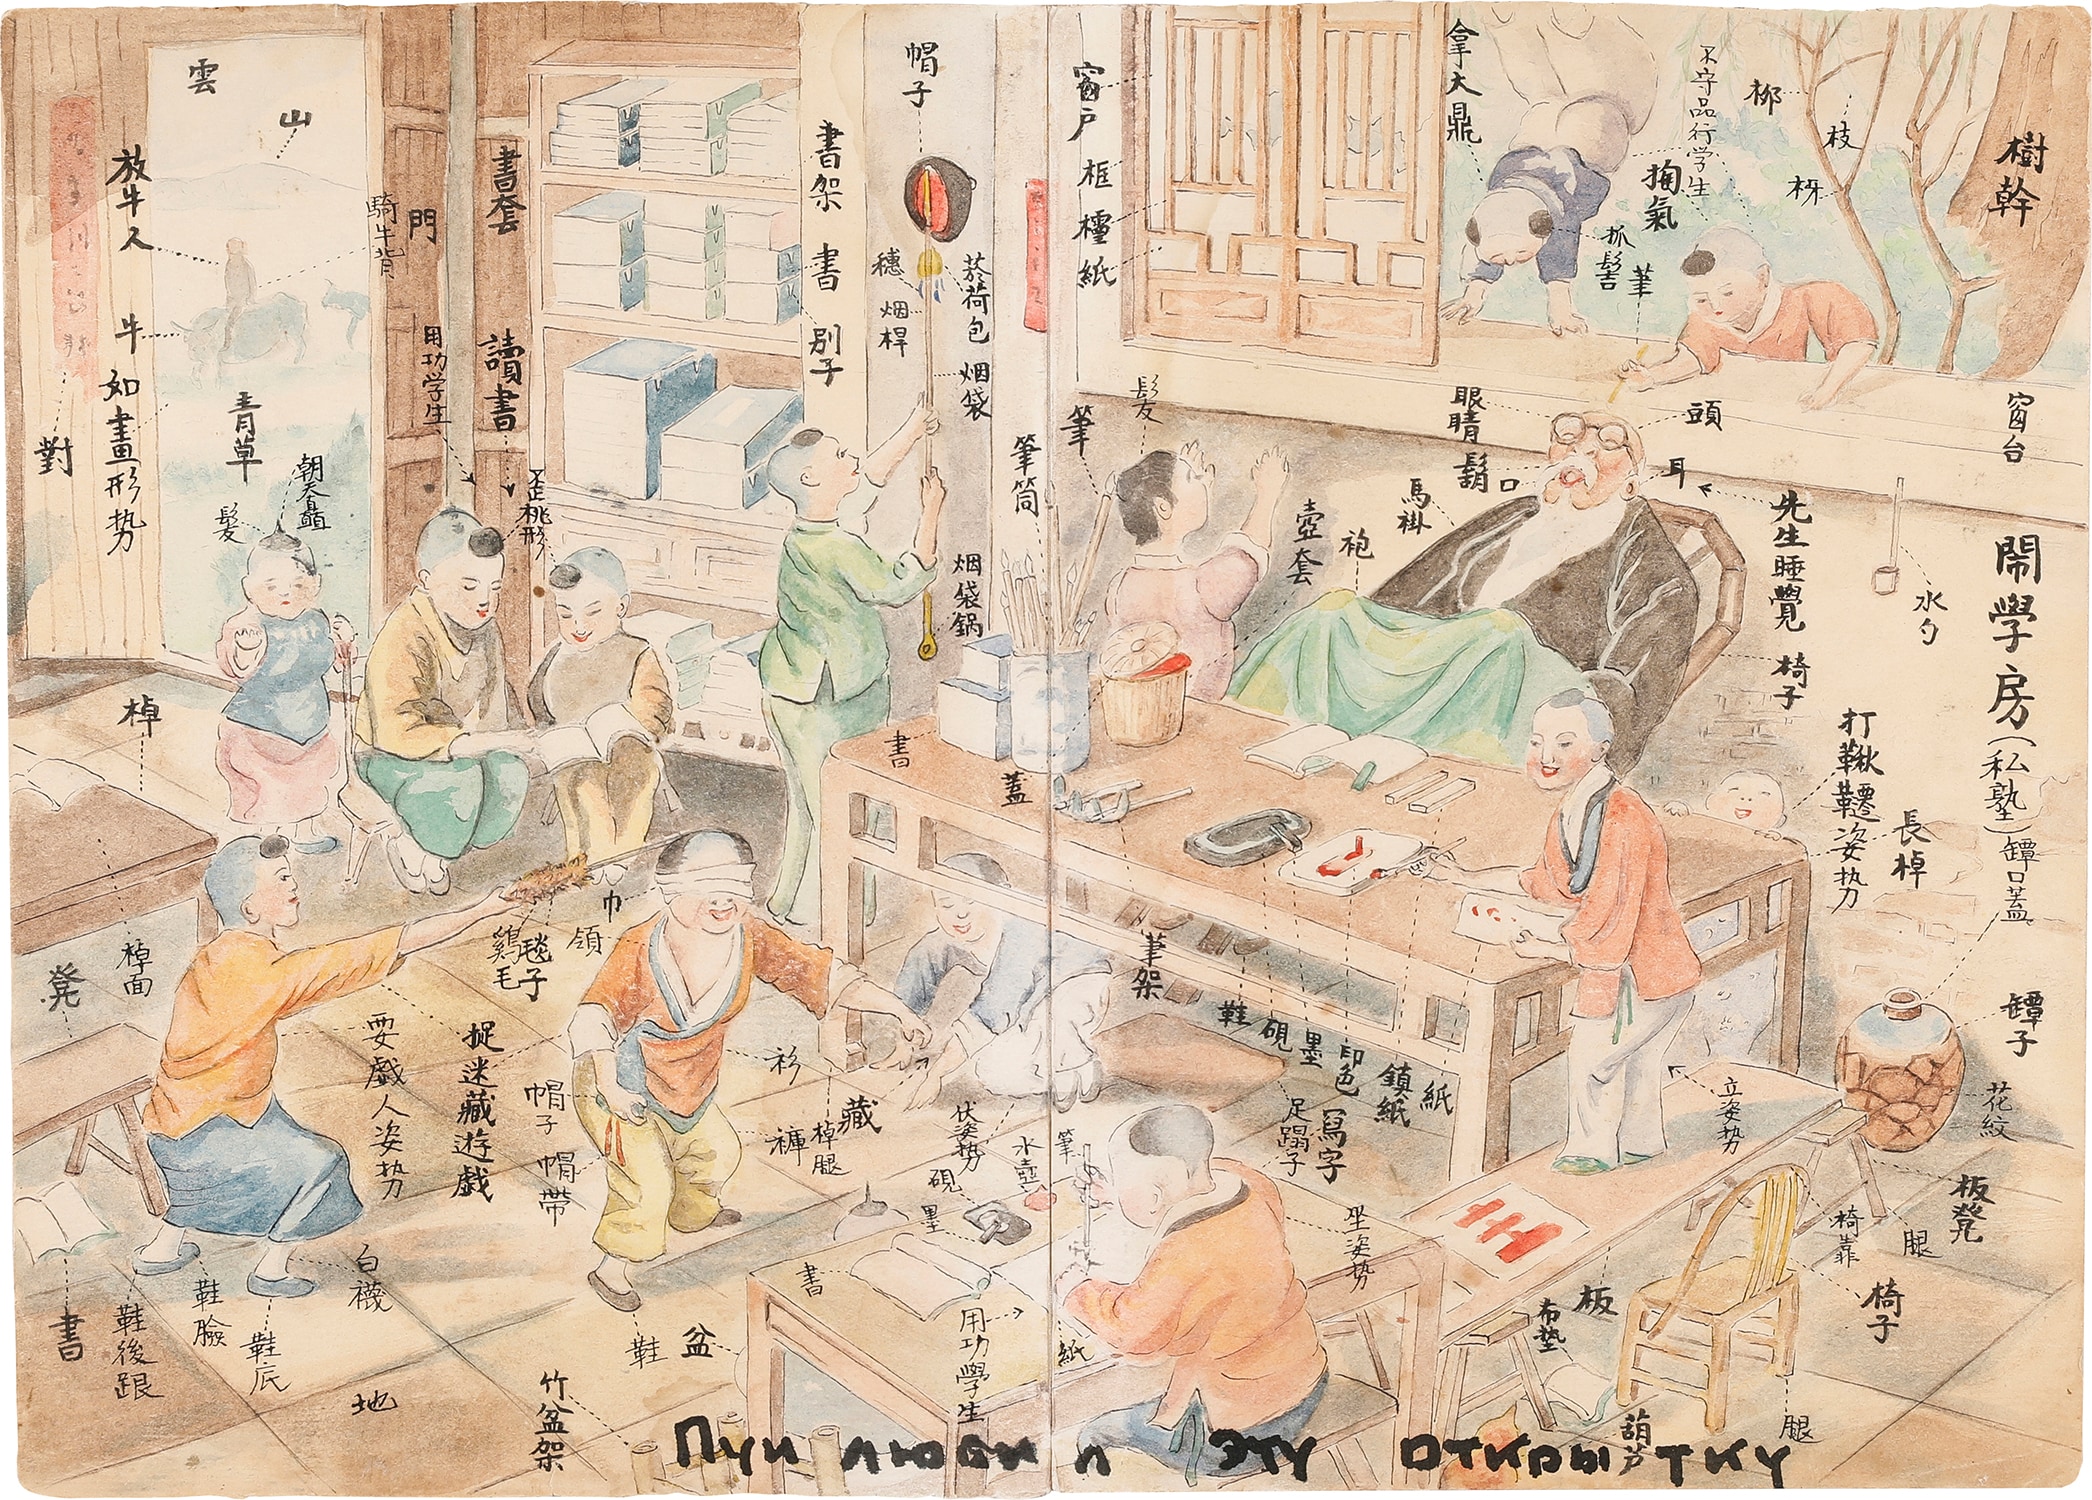 雲
山
放牛人
騎牛背
門
牛
如畫形势
對
青草
朝天直
髮
用功学生
讀書
書套
歪桃形
書架
書
別子
帽子
穗
烟桿
菸荷包
烟袋
烟袋鍋
窗戶
框
紙
拿大鼎
不守品行学生
掏氣
抓髻
筆
柳
枝
枒
樹幹
窗台
髮
筆
筆筒
壺套
袍
馬褂
眼睛
鬍
口
頭
耳
先生睡覺
椅子
水勺
鬧學房(私塾)
罈口蓋
打鞦韆姿势
長棹
罈子
花紋
棹
棹面
凳
書
蓋
巾
領
鷄毛
毯子
耍戲人姿势
捉迷藏遊戲
帽子
帽帶
衫
褲
棹腿
藏
伏姿势
筆架
鞋
硯
墨
印色
鎮紙
紙
寫字
足蹋子
立姿势
水壺
筆
硯
墨
書
用功學生
紙
坐姿势
板
布墊
板凳
腿
椅靠
椅子
腿
葫芦
白襪
鞋臉
鞋後跟
鞋底
書
地
鞋
盆
竹盆架
Пуи любил эту открытку